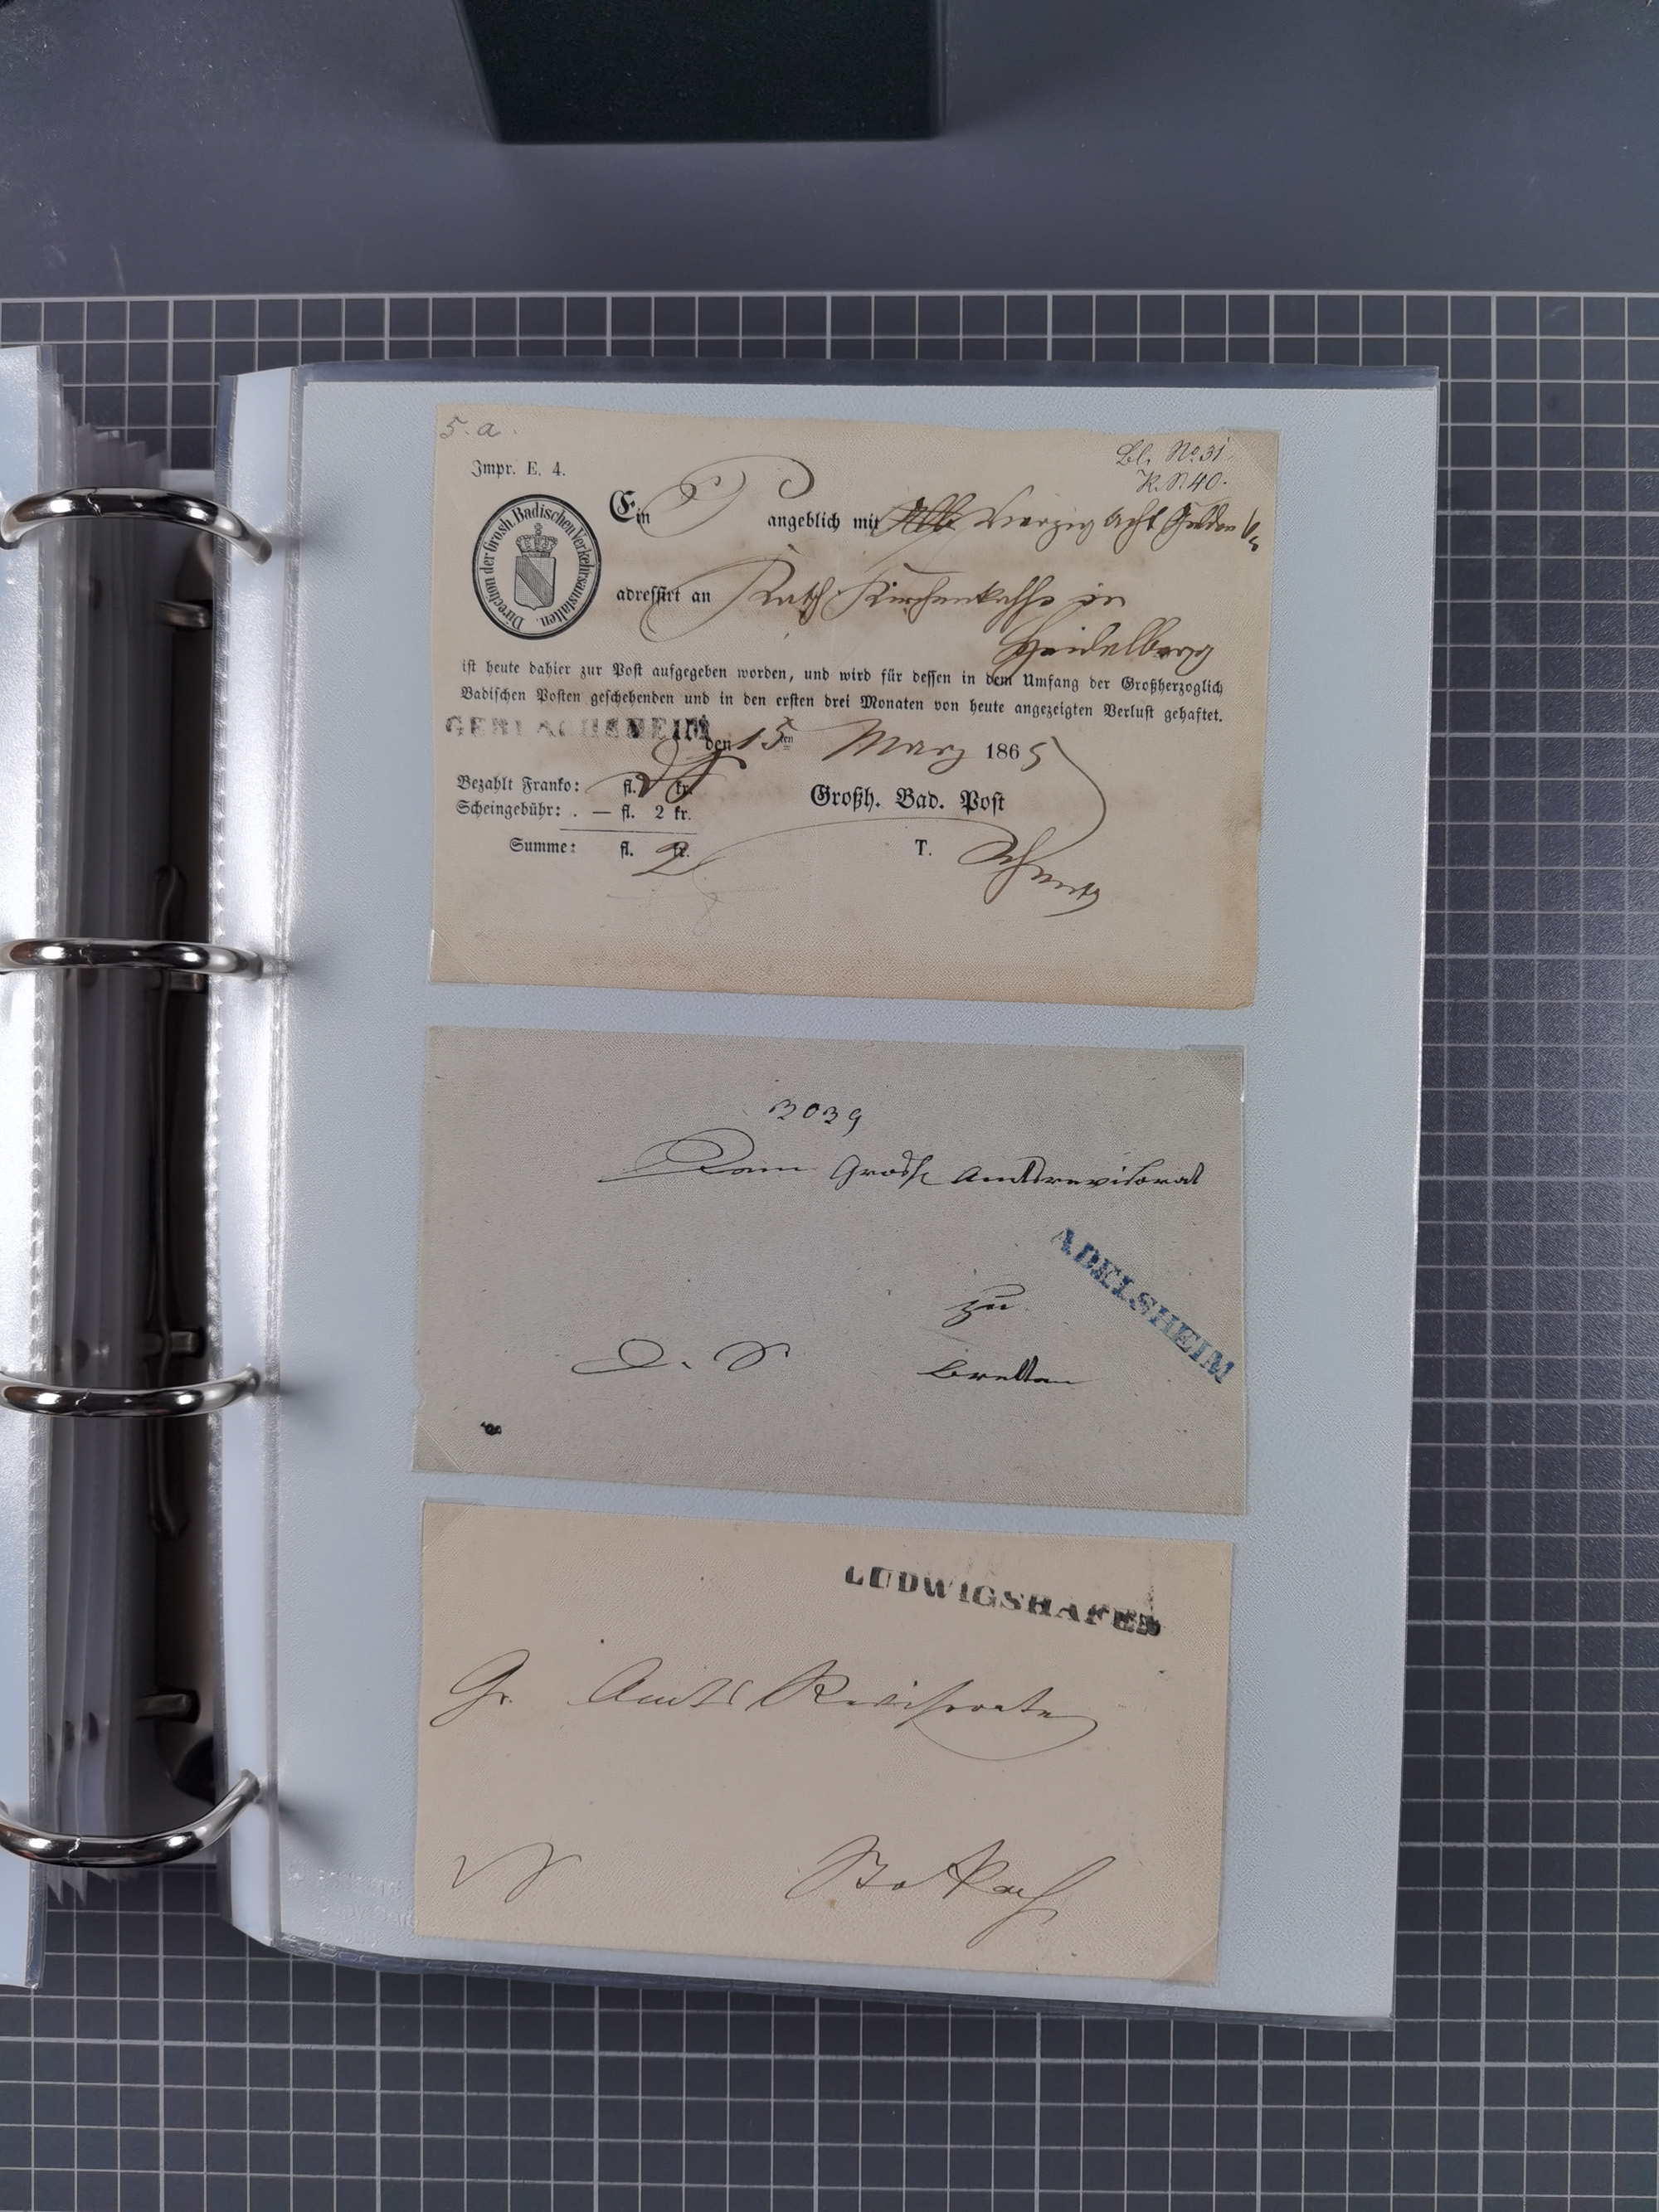 5. a.
Bl. No. 31.
K. S. 40.
Impr. E. 4.
Direction der Grosh. Badischen Verkehrsanstalten.
Ein P angeblich mit Vierzig Acht Gulden
adressirt an Kath Kirchenkasse in
Heidelberg
ist heute dahier zur Post aufgegeben worden, und wird für dessen in dem Umfang der Großherzoglich
Badischen Posten geschehenden und in den ersten drei Monaten von heute angezeigten Verlust gehaftet.
GERLACHSHEIM den 15ten März 1865
Bezahlt Franko: fl. kr.
Scheingebühr: . — fl. 2 kr.
Großh. Bad. Post
Summe: fl. 2 kr.
T.
3039
Dem Grosh Amtsrevisorat
ADELSHEIM
zu
D. S
Bretten
LUDWIGSHAFEN
Gr. Amts Revisorate
Stokach